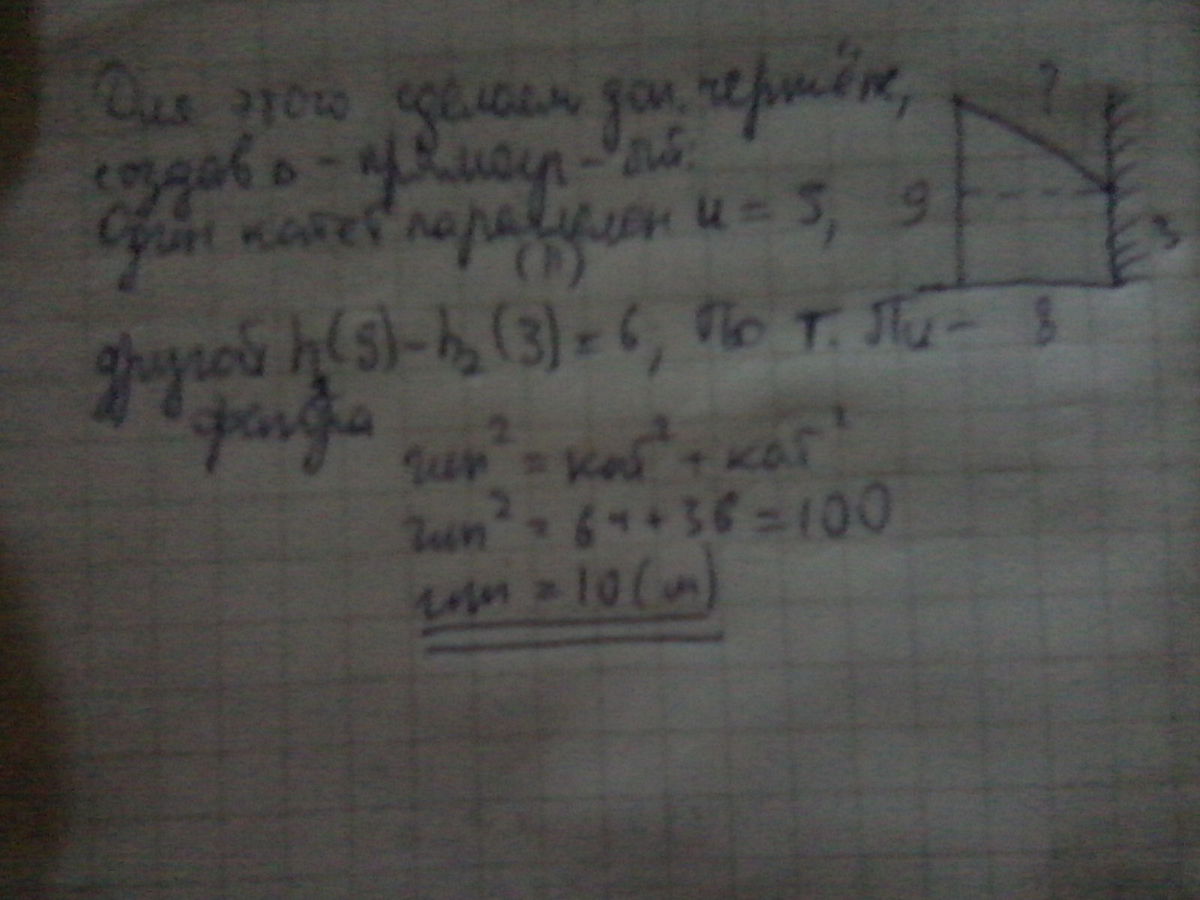 Для этого сделаем доп. чертёж,
создав Δ - прямоуг - ый:
Один катет параллелен и = 5,
(П)
другой h₁(9) - h₂(3) = 6, По т. Пи-
фагора
гип² = кат² + кат²
гип² = 64 + 36 = 100
гип = 10 (м)
?
9
3
8